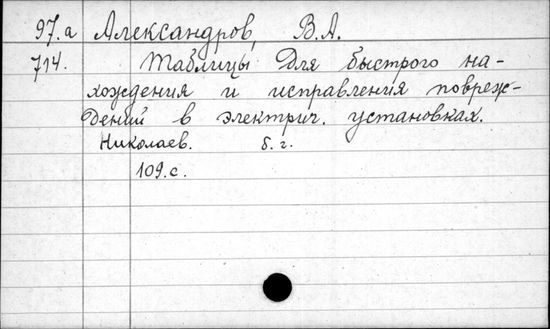 97.а Александров, В.А.
714. Таблицы для быстрого на-
хождения и исправления повреж-
дений в электрич. установках.
Николаев. б. г.
109.с.